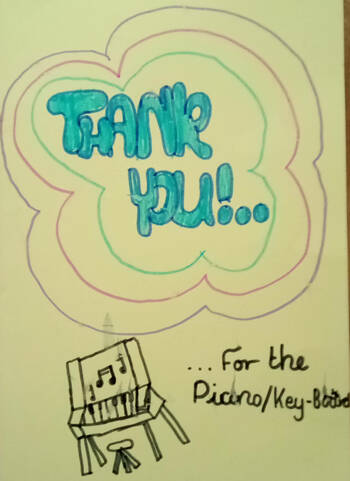 THANK
YOU!...
... For the
Piano/Key-Board